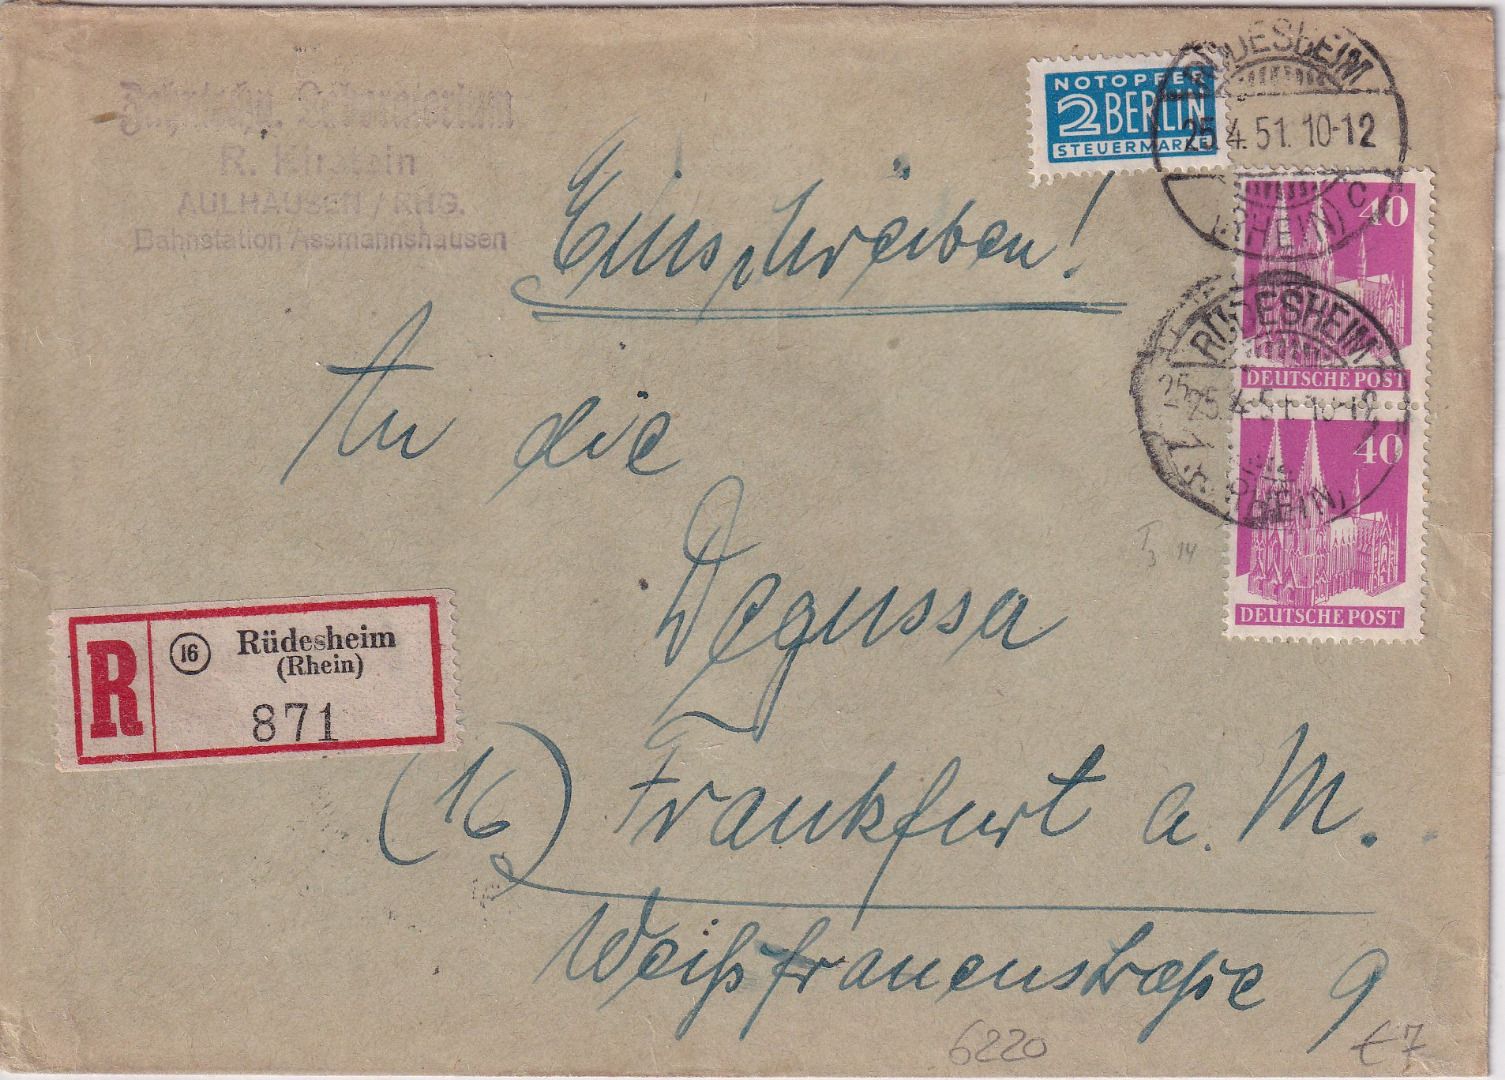 Zahntechn. Laboratorium
R. Kirstein
AULHAUSEN / RHG.
Bahnstation Assmannshausen
NOTOPFER
2 BERLIN
STEUERMARKE
RÜDESHEIM
25.4.51. 10-12
(RHEIN) C
40
DEUTSCHE POST
RÜDESHEIM
25.4.51. 10-12
(RHEIN)
40
DEUTSCHE POST
Einschreiben!
An die
Degussa
(16) Frankfurt a. M.
Weißfrauenstraße 9
R
16
Rüdesheim
(Rhein)
871
14
6220
€ 7